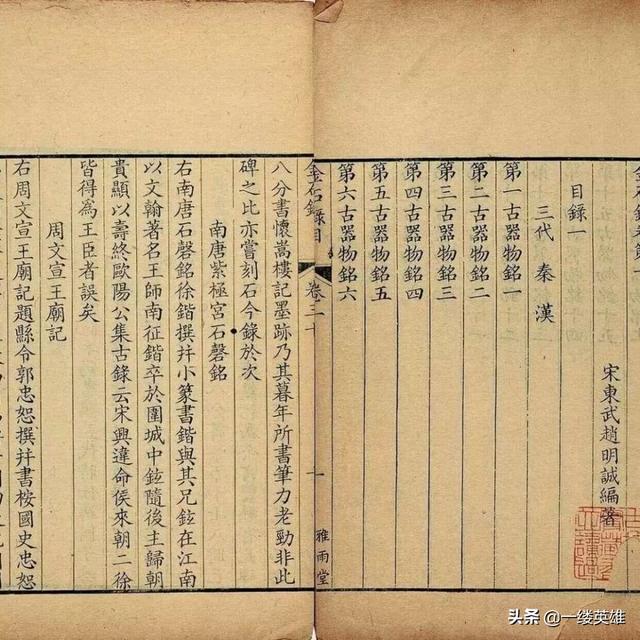 宋東武趙明誠編著
目録一
三代 秦 漢
第一古器物銘一
第二古器物銘二
第三古器物銘三
第四古器物銘四
第五古器物銘五
第六古器物銘六
金石錄目 卷三十 一 雅雨堂
八分書懷嵩樓記墨跡乃其暮年所書筆力老勁非此
碑之比亦嘗刻石今錄於次
南唐紫極宮石磬銘
右南唐石磬銘徐鍇撰并小篆書鍇與其兄鉉在江南
以文翰著名王師南征鍇卒於圍城中鉉隨後主歸朝
貴顯以壽終歐陽公集古錄云宋興違命侯來朝二徐
皆得為王臣者誤矣
周文宣王廟記
右周文宣王廟記題縣令郭忠恕撰并書桉國史忠恕
头条 @一缕英雄